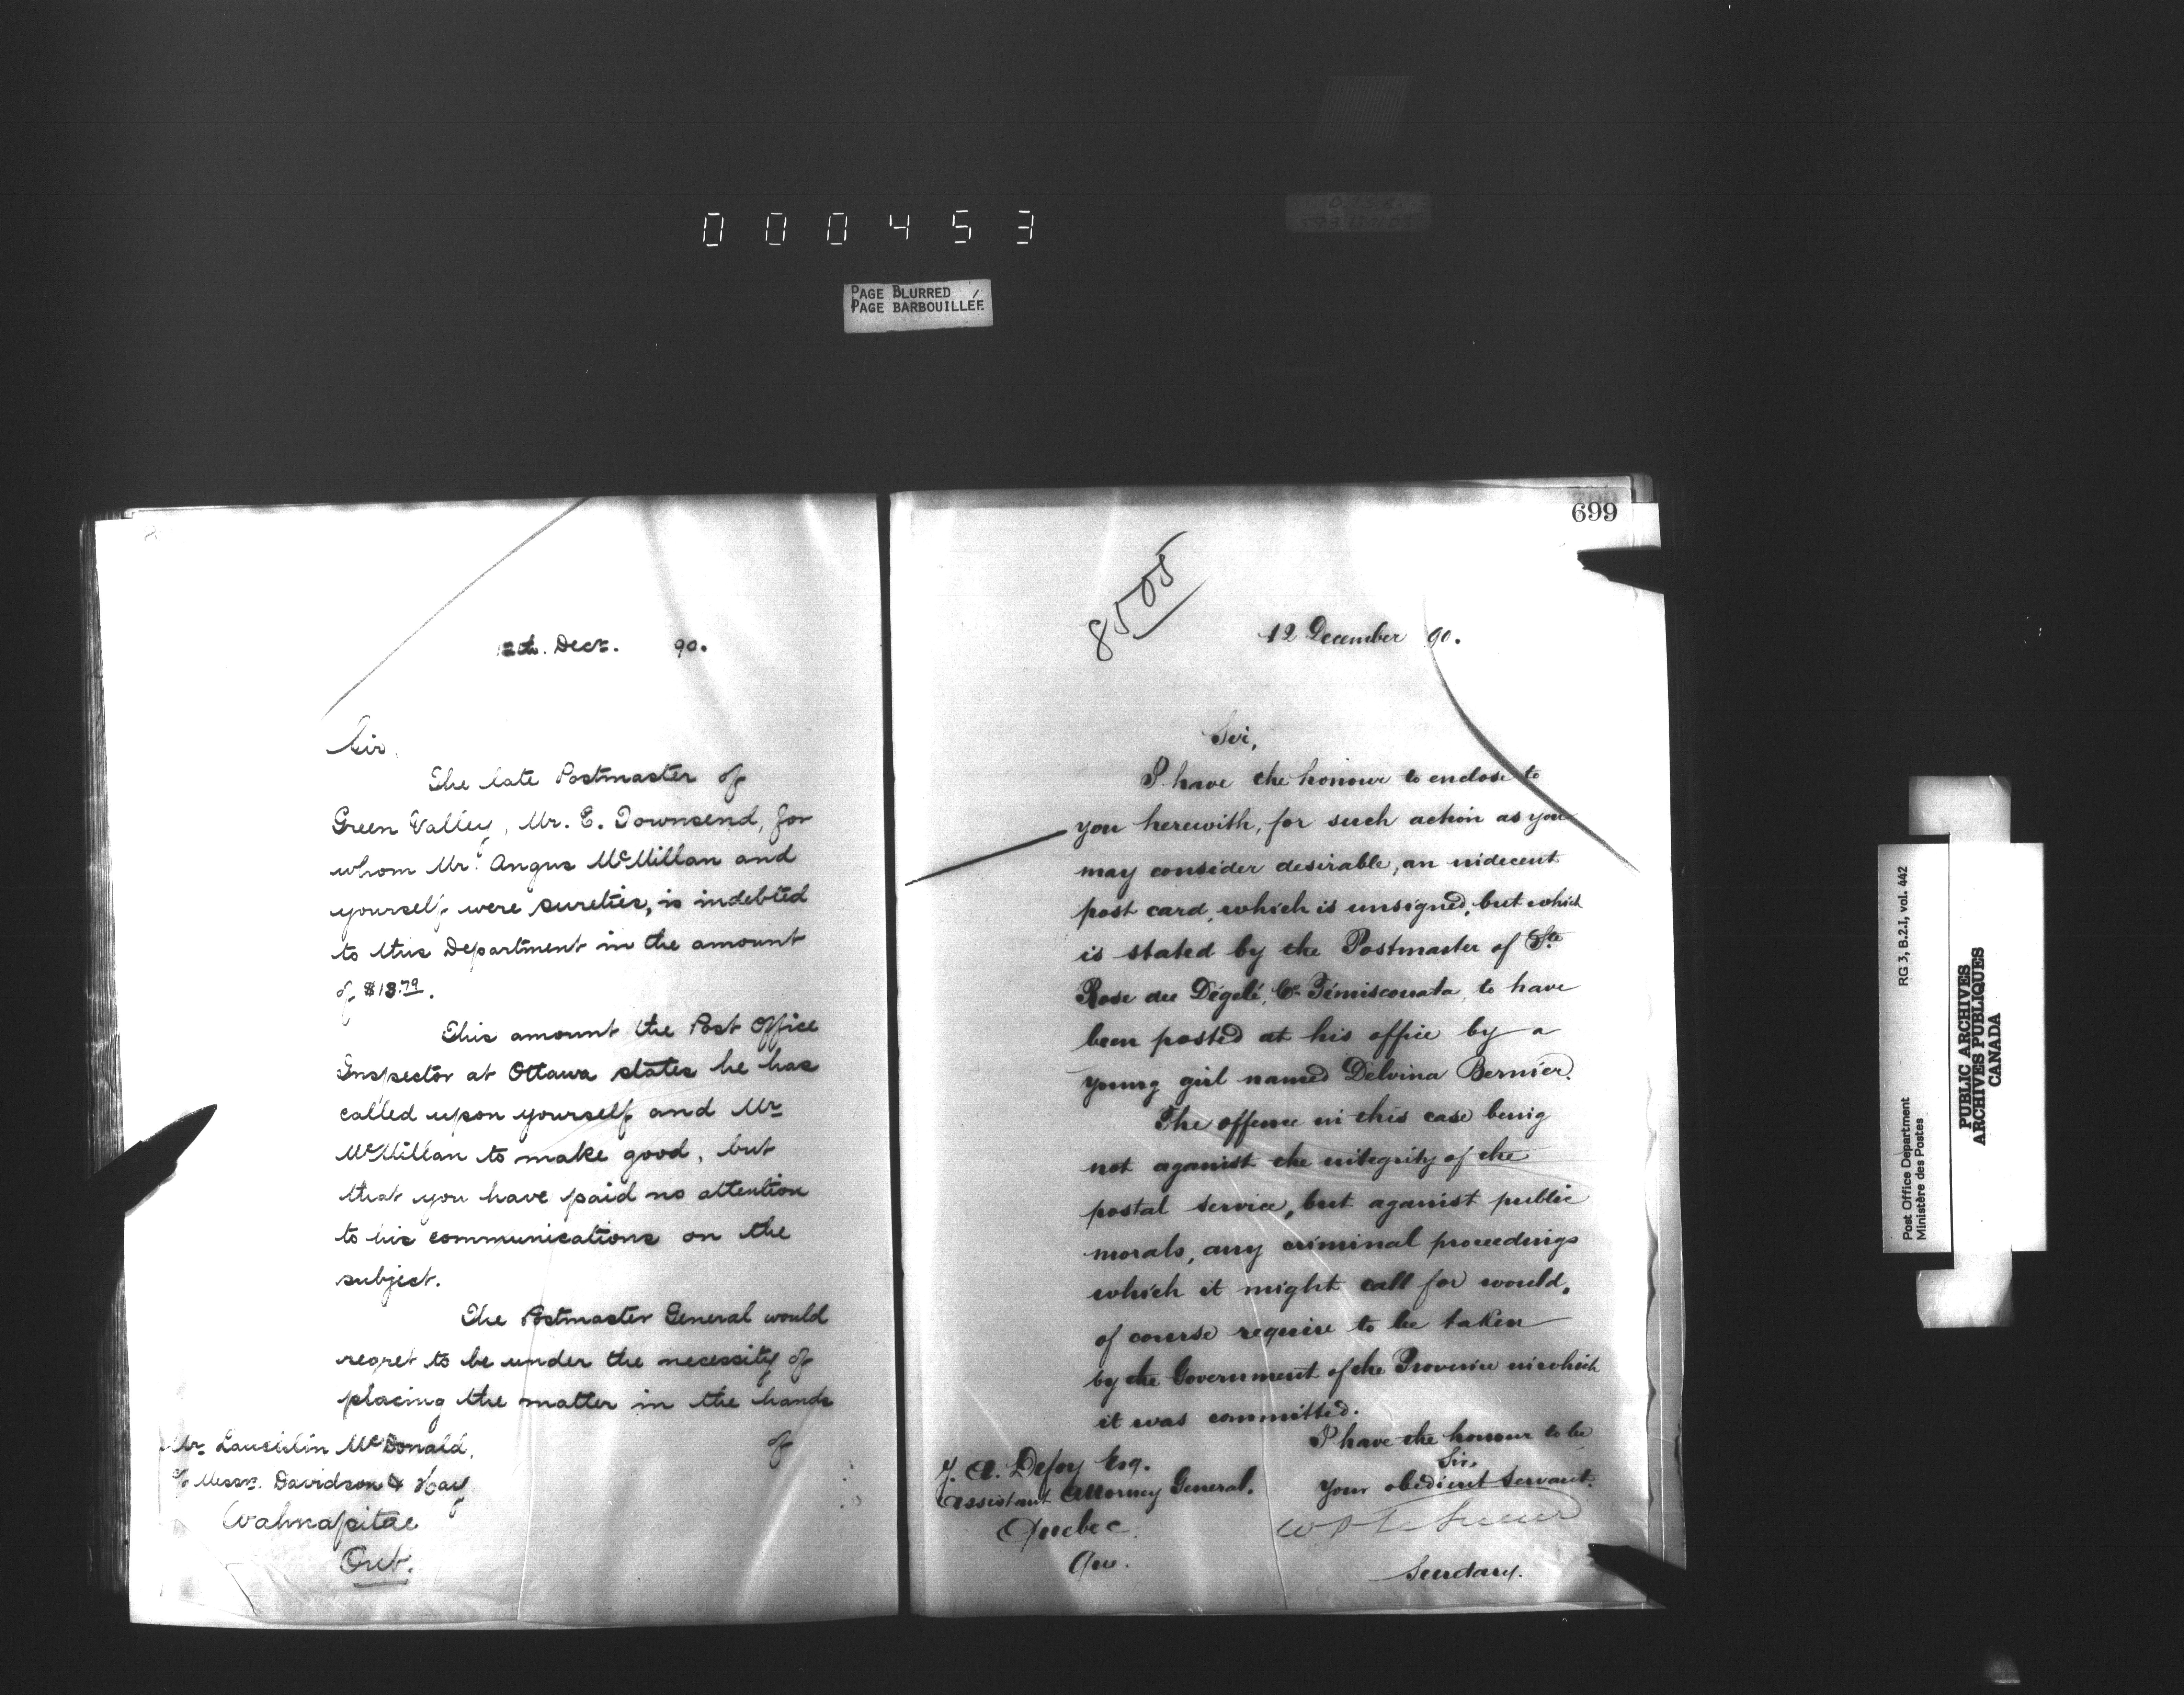 000453
PAGE BLURRED
PAGE BARBOUILLÉE
12th Decr. 90.
Sir,
The late Postmaster of
Green Valley, Mr. E. Townsend, for
whom Mr. Angus McMillan and
yourself were sureties, is indebted
to this Department in the amount
of $13.79.
This amount the Post Office
Inspector at Ottawa states he has
called upon yourself and Mr
McMillan to make good, but
that you have paid no attention
to his communications on the
subject.
The Postmaster General would
regret to be under the necessity of
placing the matter in the hands
of
Mr. Lauchlin McDonald,
c/o Messrs. Davidson & Hay
Wahnapitae
Ont.
699
8505
12 December 90.
Sir,
I have the honour to enclose to
you herewith, for such action as you
may consider desirable, an indecent
post card, which is unsigned, but which
is stated by the Postmaster of Ste
Rose du Dégelé, Co. Témiscouata, to have
been posted at his office by a
young girl named Delvina Bernier.
The offence in this case being
not against the integrity of the
postal service, but against public
morals, any criminal proceedings
which it might call for would,
of course require to be taken
by the Government of the Province in which
it was committed.
I have the honour to be
Sir,
Your obedient Servant.
W D LeSueur
Secretary.
J. A. Defoy Esq.
Assistant Attorney General.
Quebec.
Que.
Post Office Department
Ministère des Postes
RG 3, B.2.1, vol. 442
PUBLIC ARCHIVES
ARCHIVES PUBLIQUES
CANADA